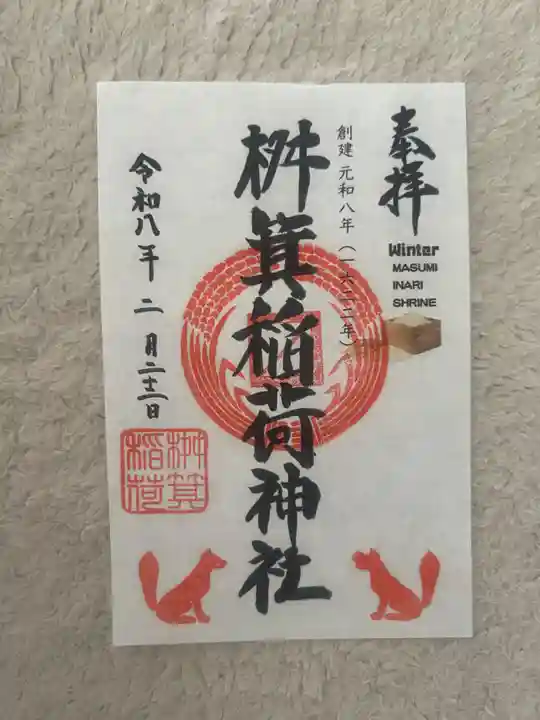 奉拝
Winter
MASUMI
INARI
SHRINE
創建 元和八年(一六二二年)
桝箕稲荷神社
令和八年 二月二十二日
桝箕
稲荷